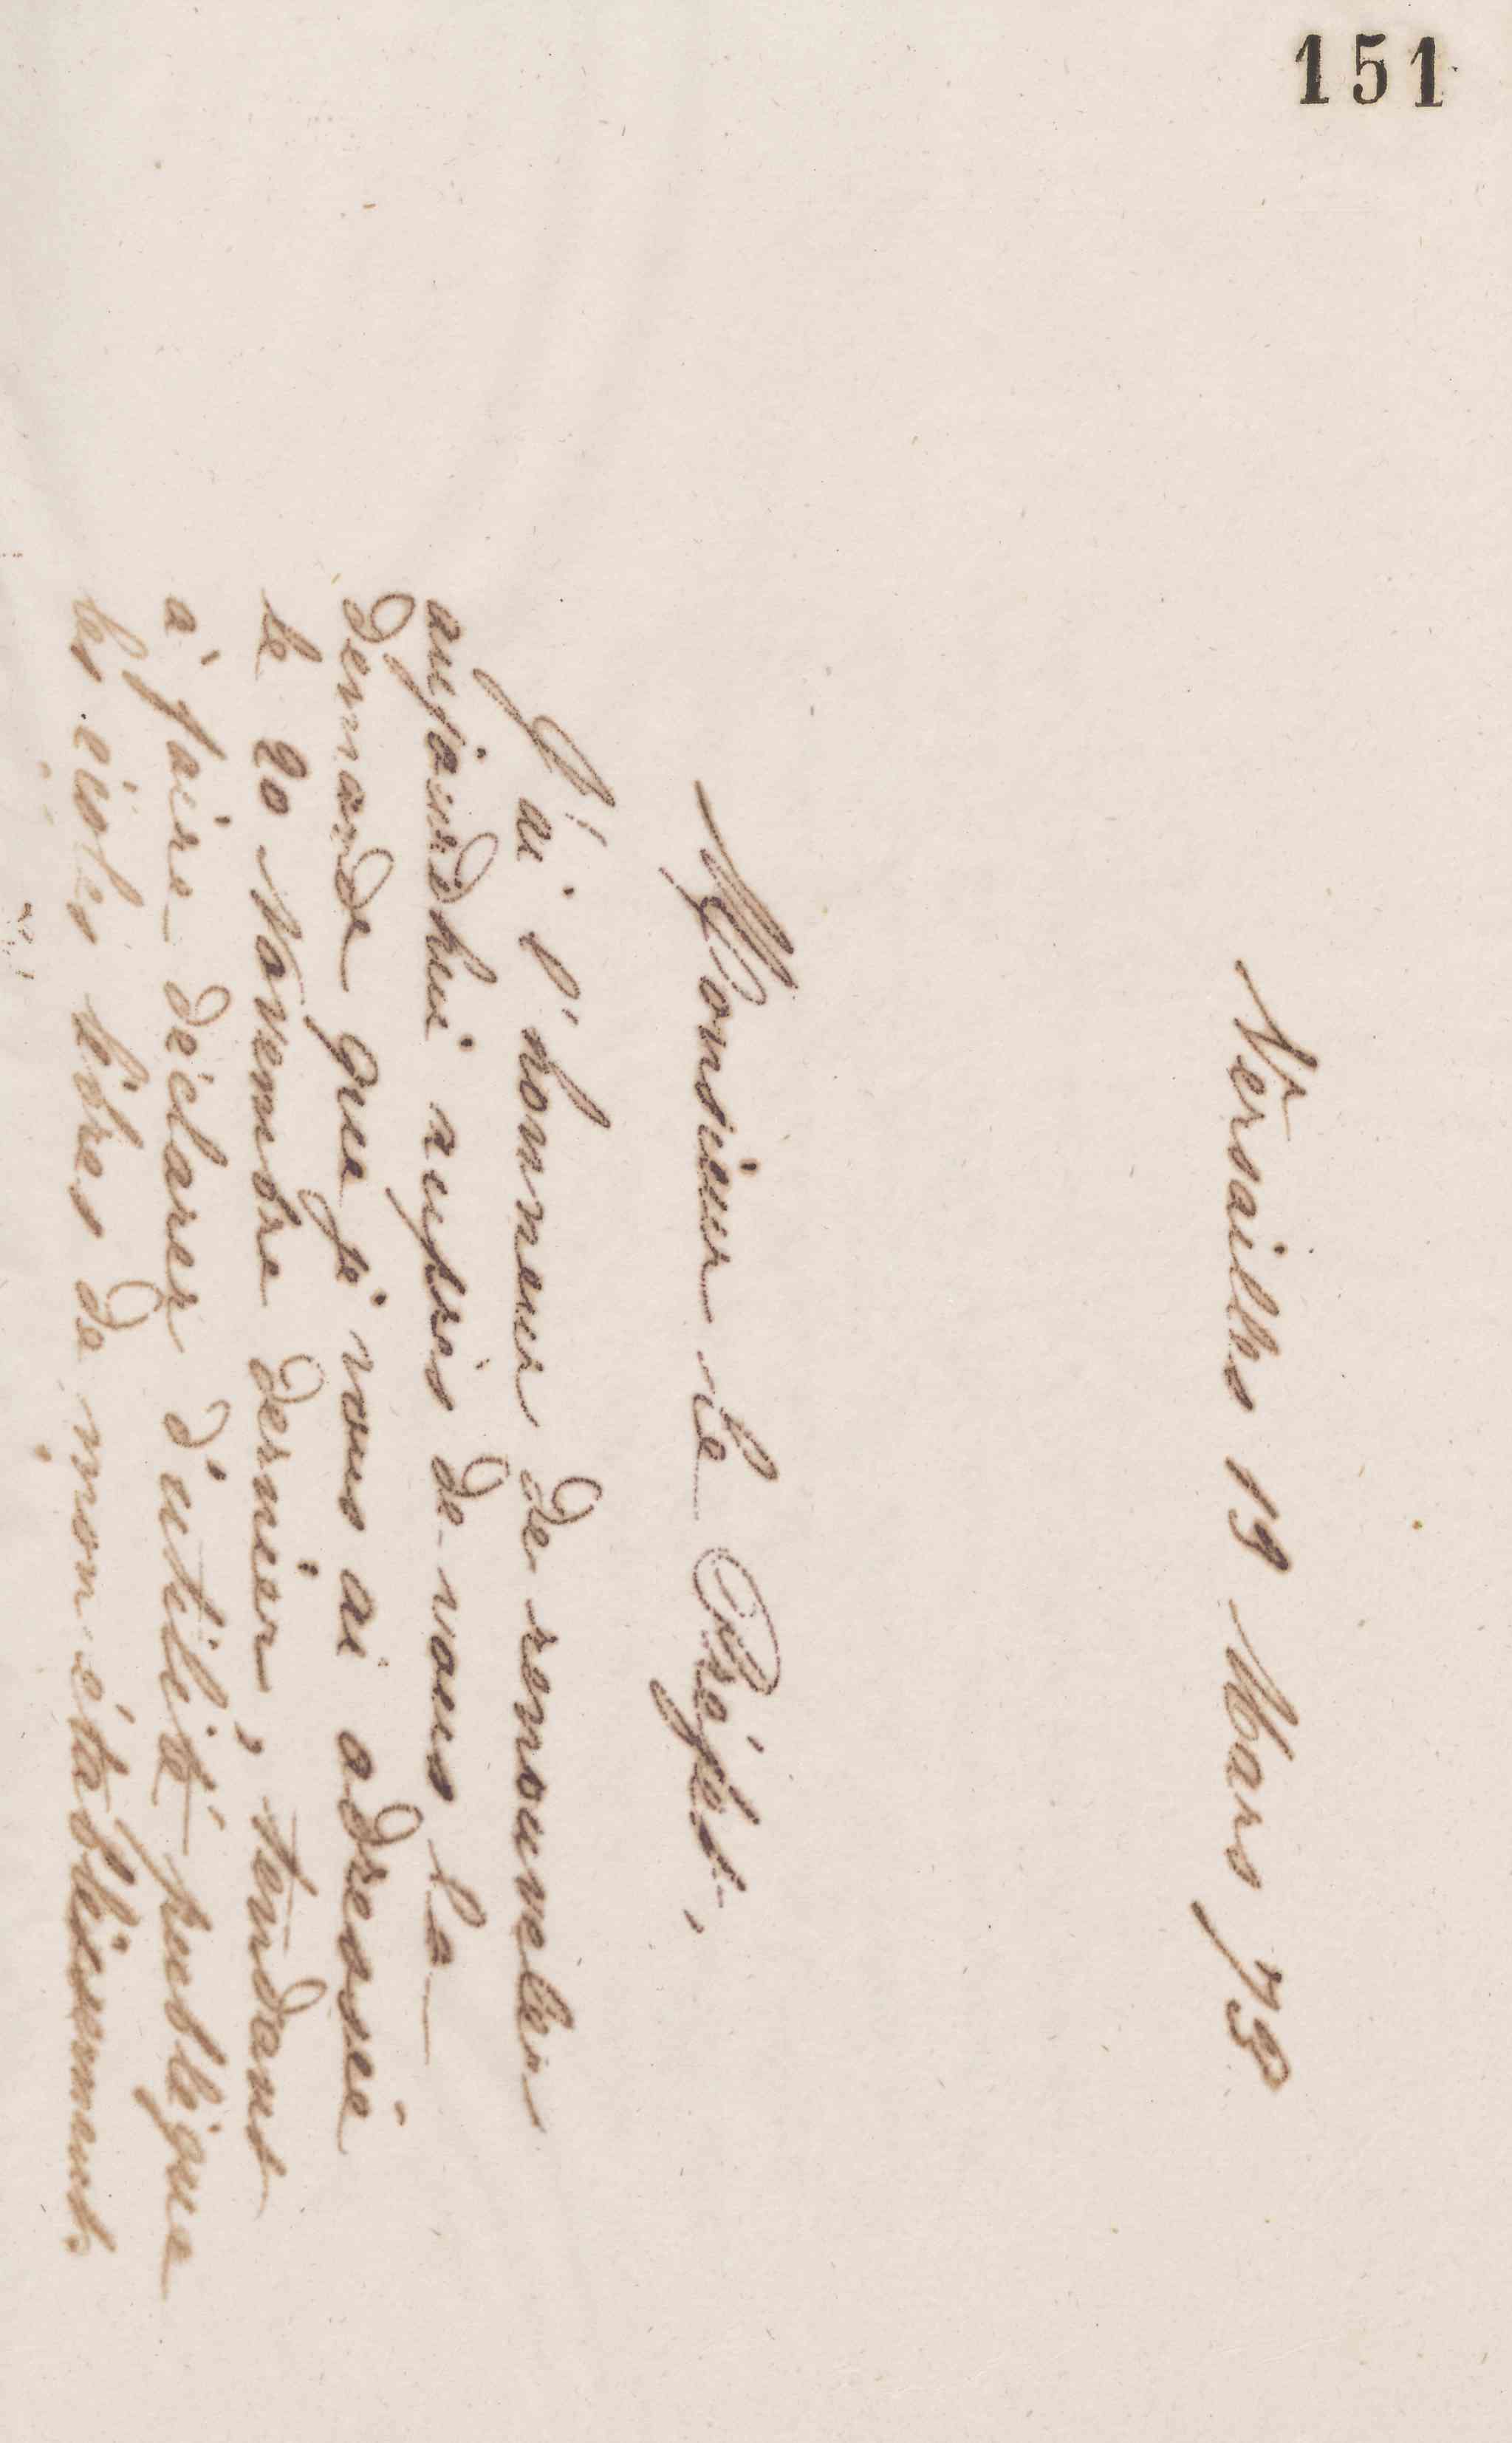 151
Versailles 19 Mars 79
Monsieur le Préfet,
J'ai l'honneur de renouveler
aujourdhui auprès de vous la
demande que je vous ai adressée
le 20 Novembre dernier, tendant
à faire déclarer d'utilité publique
les écoles libres de mon établissement.